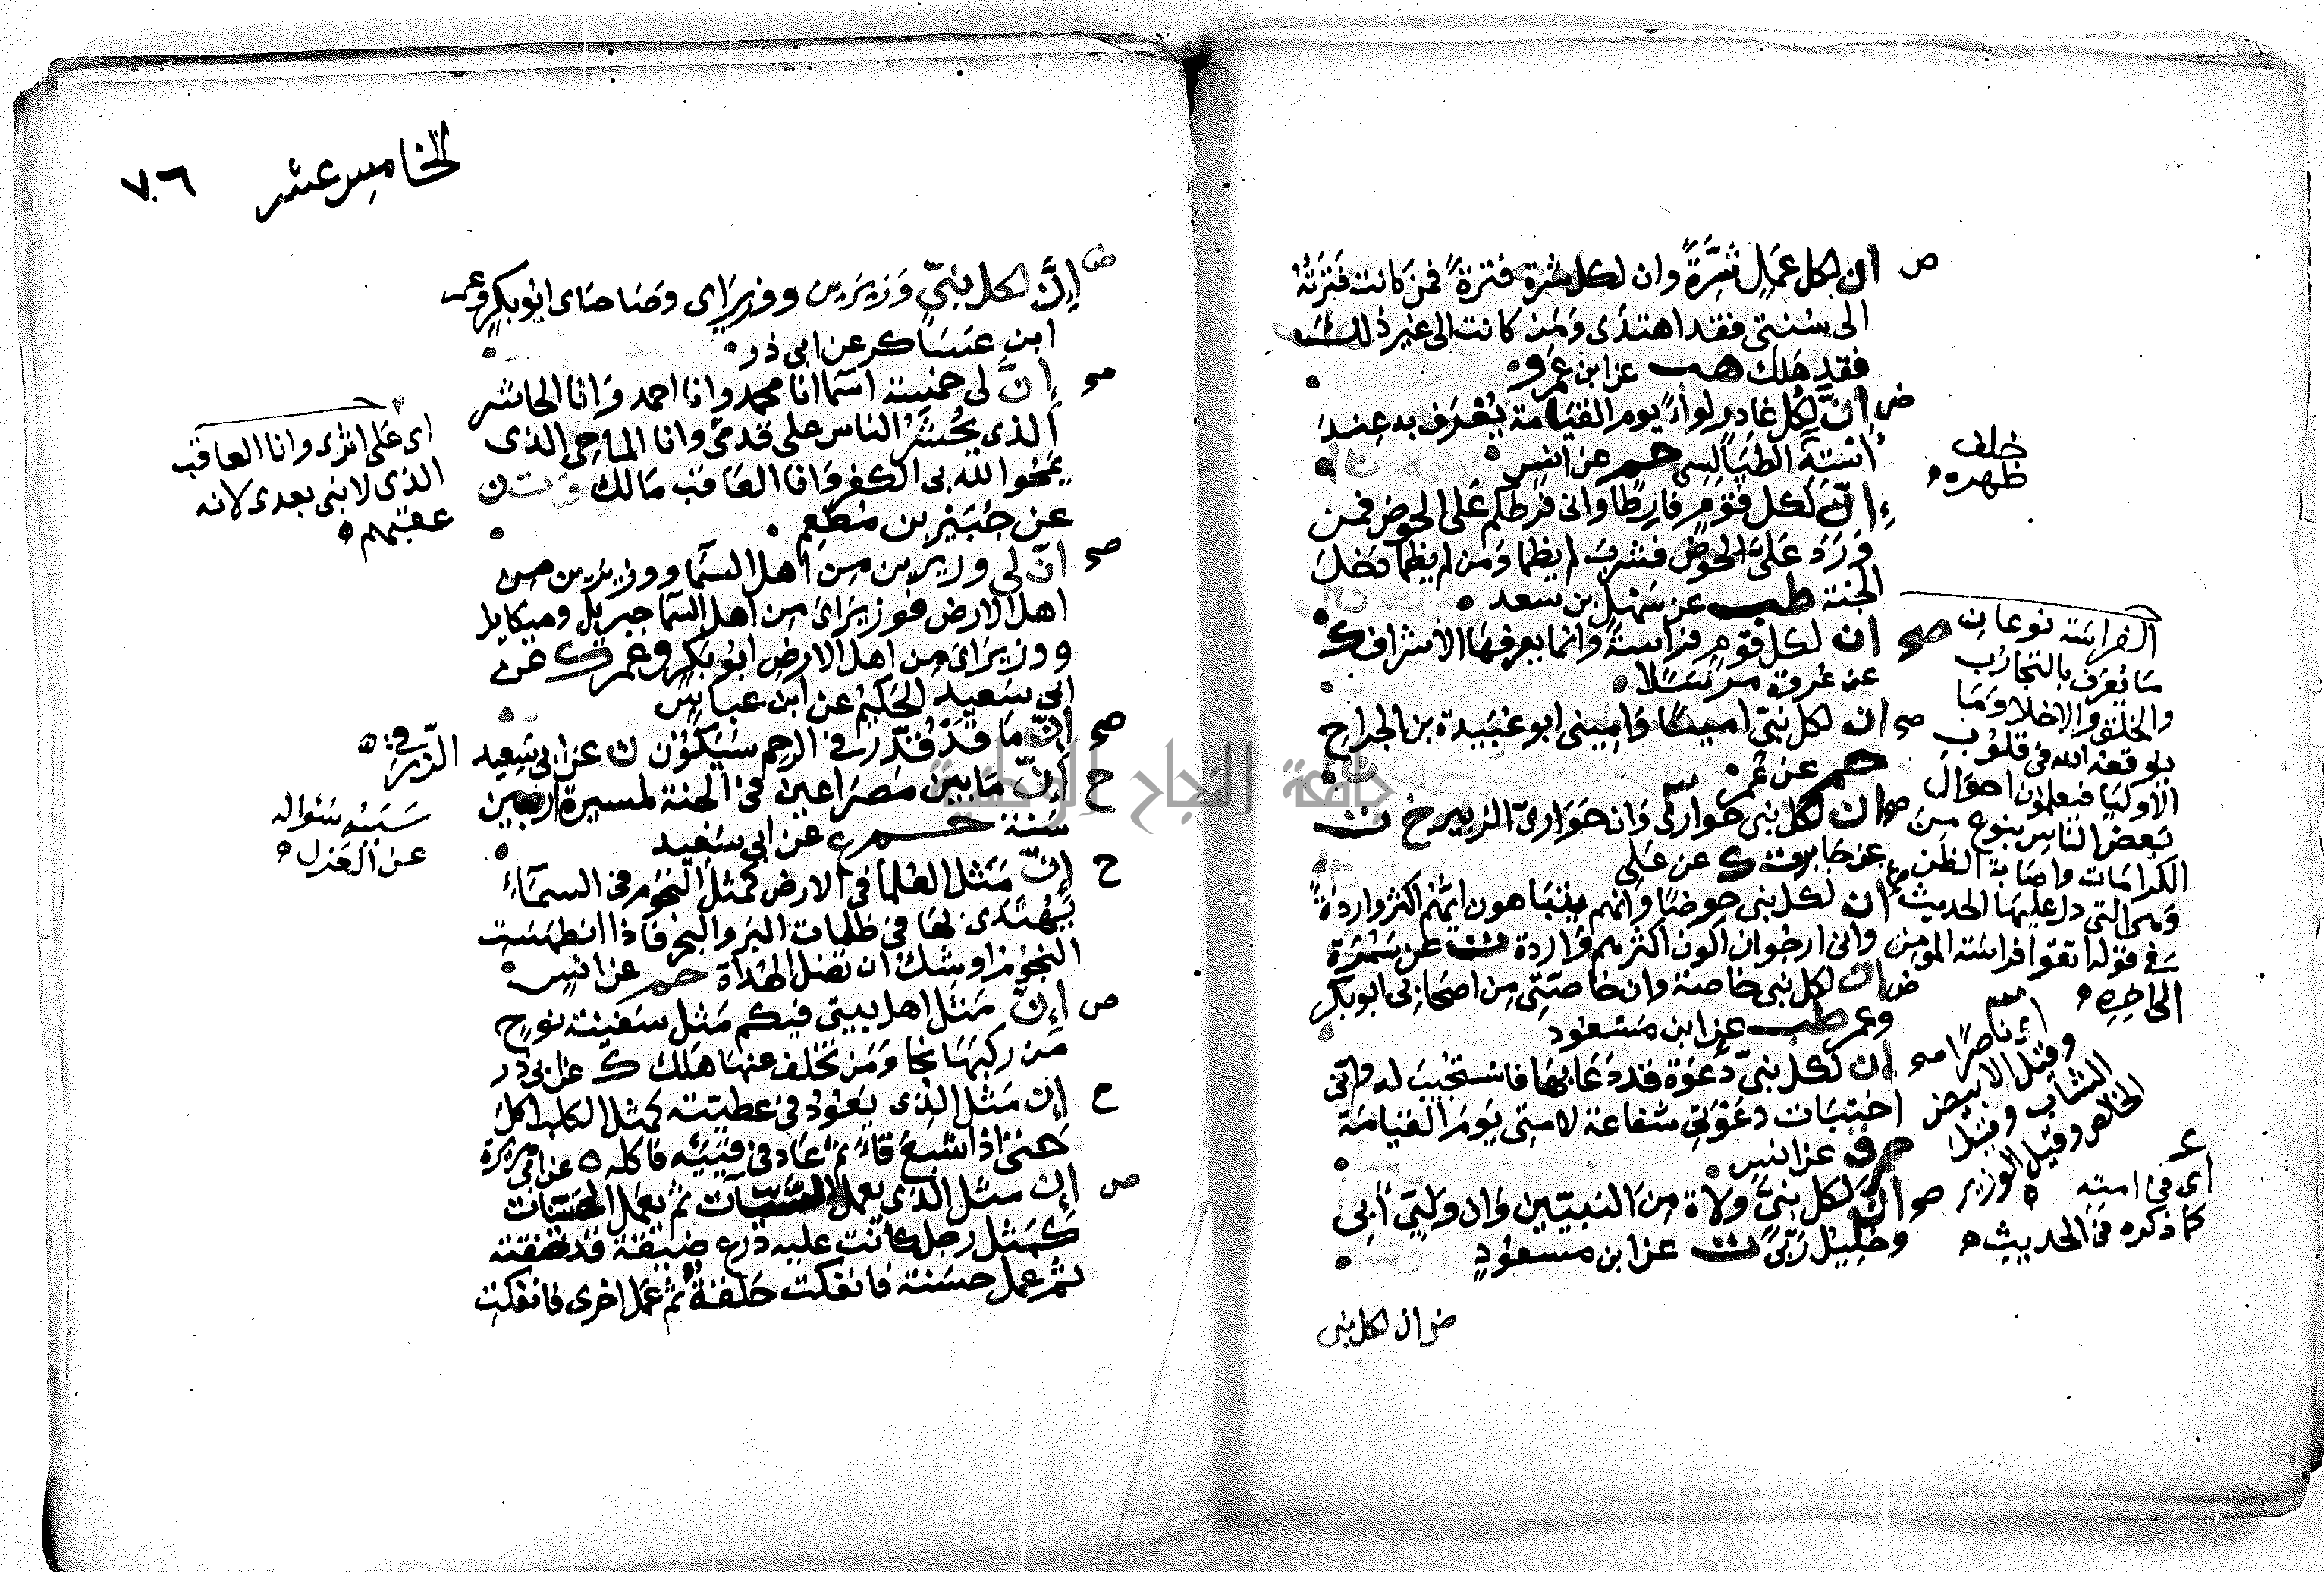 ض ان لكل عمل شرة وان لكل شرة فترة فمن كانت فترته
الى سنتى فقد اهتدى ومن كانت الى غير ذلك
فقد هلك هب عن ابن عمرو
ض ان لكل غادر لواء يوم القيامة يعرف به عند
استه الطيالسى حم عن انس
خلف
ظهره
ان لكل قوم فارطا وانى فرطكم على الحوض فمن
ورد على الحوض فشرب لم يظما ومن لم يظما دخل
الجنة طب عن سهل بن سعد
صح ان لكل قوم فراسة وانما يعرفها الاشراف ك
عن عروة مرسلا
صح ان لكل نبى امينا وامينى ابو عبيدة بن الجراح
حم عن عمر
صح ان لكل نبى حوارى وان حوارى الزبير خ ت
عن جابر ت ك عن على
ان لكل نبى حوضا وانهم يتباهون ايهم اكثر واردة
وانى ارجوا ان اكون اكثرهم واردة ت عن سمرة
ض ان لكل نبى خاصة وان خاصتى من اصحابى ابو بكر
وعمر طب عن ابن مسعود
صح ان لكل نبى دعوة قد دعا بها فاستجيب له وانى
اختبات دعوتى شفاعة لامتى يوم القيامة
حم ق عن انس
صح ان لكل نبى ولاة من النبيين وان وليى ابى
وخليل ربى ت عن ابن مسعود
ض ان لكل نبى
الفراسة نوعان
ما يعرف بالتجارب
والخلق والاخلا وما
يوقعه الله فى قلوب
الاوليا فيعلمون احوال
بعض الناس بنوع من
الكرامات واصابة الظن
وهى التى دل عليها الحديث
فى قوله اتقوا فراسة المومن
الى اخره
اى ناصرا
وقيل الابيض
الشاب وقيل
الخالص وقيل الوزير
اى فى امته
كما ذكره فى الحديث
الخامس عشر
٧٦
ض ان لكل نبى وزيرين ووزيراى وصاحباى ابو بكر وعمر
ابن عساكر عن ابى ذر
صح ان لى خمسة اسما انا محمد وانا احمد وانا الحاشر
الذى يحشر الناس على قدمى وانا الماحى الذى
يمحوا الله بى الكفر وانا العاقب مالك ق ت ن
عن جبير بن مطعم
اى على اثرى وانا العاقب
الذى لا نبى بعدى لانه
عقبهم
صح ان لى وزيرين من اهل السما ووزيرين من
اهل الارض فوزيراى من اهل السما جبريل وميكايل
ووزيراى من اهل الارض ابو بكر وعمر ك عن
ابى سعيد الحكيم عن ابن عباس
صح ان ما قد قدر فى الرحم سيكون ن عن ابى سعيد الزرقى
ح ان ما بين مصراعين فى الجنة لمسيرة اربعين
سنة حم ع عن ابى سعيد
سببه سؤاله
عن العزل
ح ان مثل العلما فى الارض كمثل النجوم فى السماء
يهتدى بها فى ظلمات البر والبحر فاذا انطمست
النجوم اوشك ان تضل الهداة حم عن انس
ض ان مثل اهل بيتى فيكم مثل سفينة نوح
من ركبها نجا ومن تخلف عنها هلك ك عن ابى ذر
ح ان مثل الذى يعود فى عطيته كمثل الكلب اكل
حتى اذا شبع قاء ثم عاد فى قيئه فاكله ه عن ابى هريرة
ض ان مثل الذى يعمل السيات ثم يعمل الحسنات
كمثل رجل كانت عليه درع ضيقة قد خنقته
ثم عمل حسنة فانفكت حلقة ثم عمل اخرى فانفكت
جامعة النجاح الوطنية